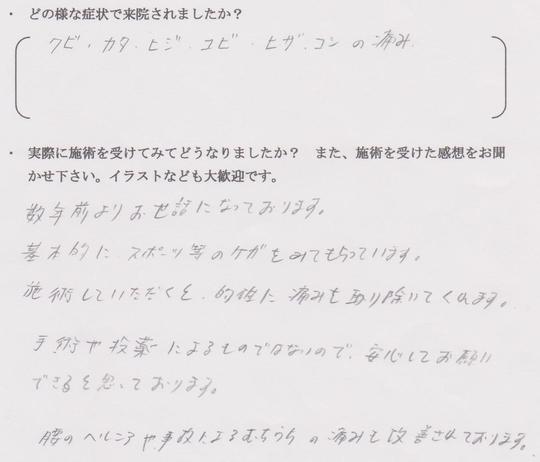 ・ どの様な症状で来院されましたか？
クビ・カタ・ヒジ・ユビ・ヒザ・コシの痛み
・ 実際に施術を受けてみてどうなりましたか？　また、施術を受けた感想をお聞
かせ下さい。イラストなども大歓迎です。
数年前よりお世話になっております。
基本的に、スポーツ等のケガをみてもらっています。
施術していただくと、的確に痛みを取り除いてくれます。
手術や投薬によるものではないので、安心してお願い
できると思っております。
腰のヘルニアや事故によるむちうちの痛みも改善されております。